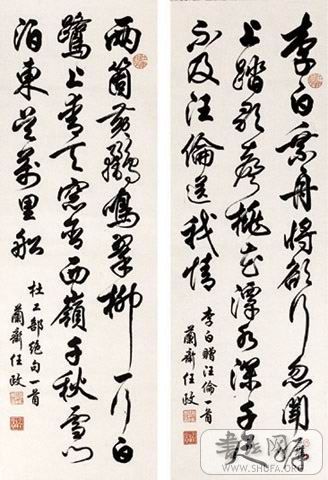 李白乘舟將欲行忽聞岸
上踏歌聲桃花潭水深千尺
不及汪倫送我情
李白贈汪倫一首
蘭齋任政
兩箇黃鸝鳴翠柳一行白
鷺上青天窗含西嶺千秋雪門
泊東吳萬里船
杜工部絕句一首
蘭齋任政
书法网
WWW.SHUFA.ORG